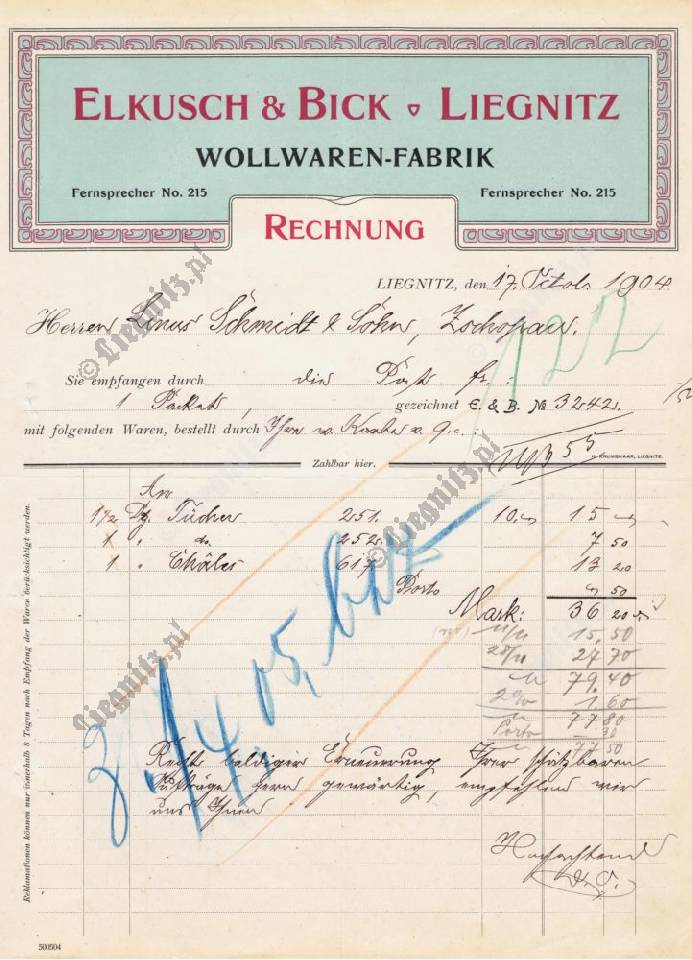 ELKUSCH & BICK LIEGNITZ
WOLLWAREN-FABRIK
Fernsprecher No. 215
Fernsprecher No. 215
RECHNUNG
LIEGNITZ, den 17. Octob. 1904
Herren Linus Schmidt & Sohn, Zschopau.
1202
Sie empfangen durch die Post fr.:
1 Packet, gezeichnet E. & B. No 3242.
mit folgenden Waren, bestellt durch Ihren
55
Zahlbar hier.
KRUMBHAAR, LIEGNITZ.
An
1 1/2 Dtz. Tücher 251. 10.– 15 –
1 " do. 252. 7 50
1 " Châles 617. 13 20
Porto – 50
Mark: 36 20
15.50
27 70
79.40
2% 1.60
77 80
Porto 30
77 50
3./4. 05,
Recht baldiger Erneuerung Ihrer schätzbaren
Aufträge gern gewärtig, empfehlen wir
uns Ihnen
Hochachtend
Reklamationen können nur innerhalb 8 Tagen nach Empfang der Waren berücksichtigt werden.
500504
© Liegnitz.pl
© Liegnitz.pl
Liegnitz.pl